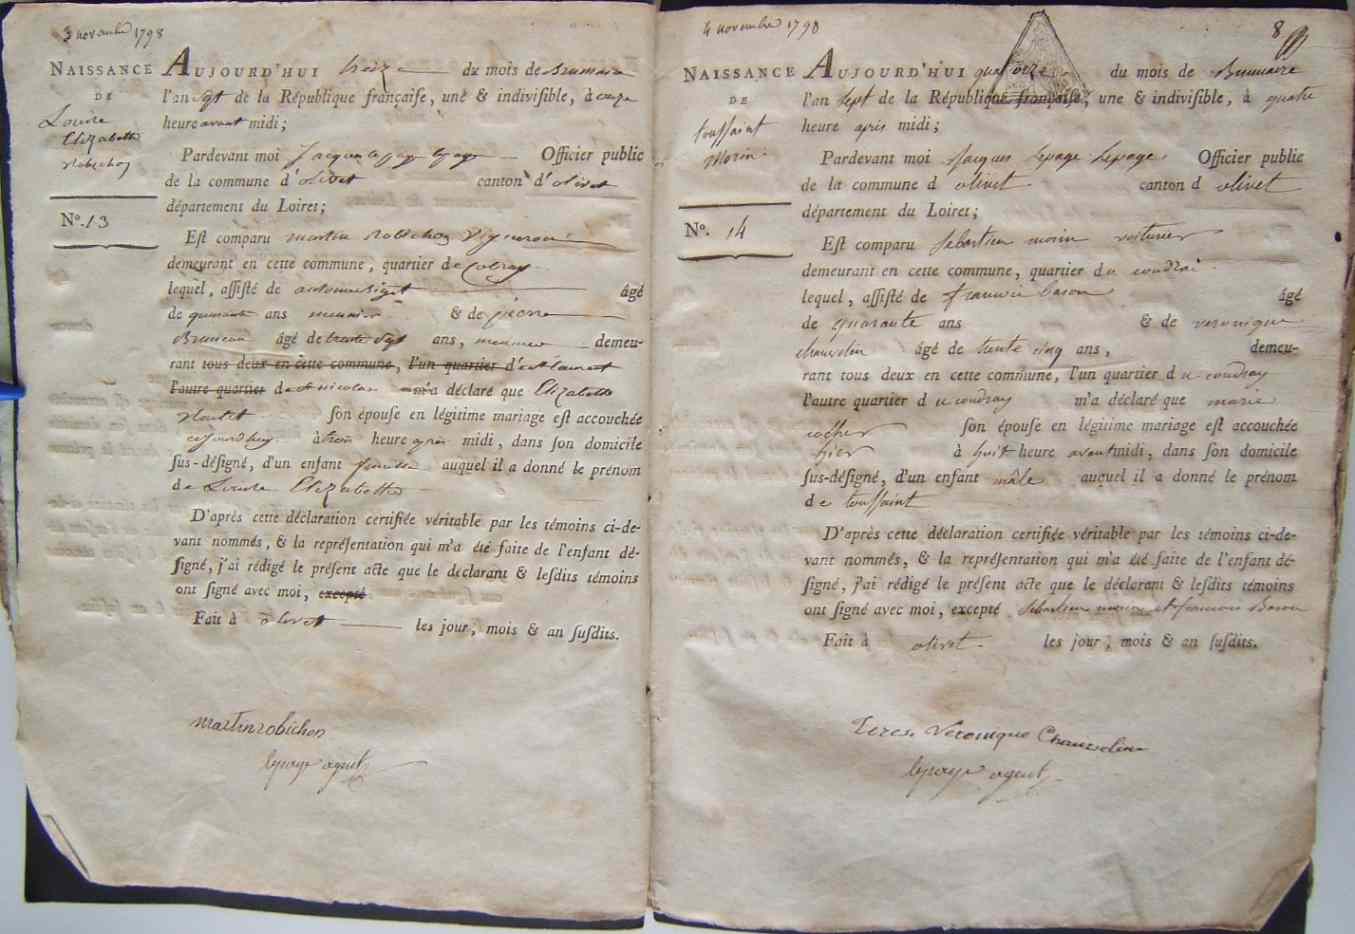 3 novembre 1798
NAISSANCE
DE
Louise
Elizabette
Robichon
N°. 13
AUJOURD'HUI treize du mois de Brumaire
l'an sept de la République françaiſe, une & indiviſible, à onze
heure avant midi;
Pardevant moi Jacques lepage lepage Officier public
de la commune d'olivet canton d'olivet
département du Loiret;
Eſt comparu martin Robichon vigneron
demeurant en cette commune, quartier de
lequel, aſſiſté de antoine âgé
de quarante ans meunier & de pierre
Bruneau âgé de trente sept ans, meunier demeu-
rant tous deux en cette commune, l'un quartier d' st laurent
l'autre quartier de st nicolas m'a déclaré que Elizabette
ſon épouſe en légitime mariage eſt accouchée
cejourdhuy à trois heure après midi, dans ſon domicile
ſus-déſigné, d'un enfant femelle auquel il a donné le prénom
de Louise Elizabette
D'après cette déclaration certifiée véritable par les témoins ci-de-
vant nommés, & la repréſentation qui m'a été faite de l'enfant dé-
ſigné, j'ai rédigé le préſent acte que le déclarant & leſdits témoins
ont ſigné avec moi, excepté
Fait à olivet les jour, mois & an ſuſdits.
martin robichon
lepage agent
4 novembre 1798
8
NAISSANCE
DE
touſſaint
Morin
N°. 14
AUJOURD'HUI quatorze du mois de Brumaire
l'an sept de la République françaiſe, une & indiviſible, à quatre
heure après midi;
Pardevant moi Jacques Lepage Lepage Officier public
de la commune d olivet canton d olivet
département du Loiret;
Eſt comparu sebastien morin voiturier
demeurant en cette commune, quartier du coudrai
lequel, aſſiſté de francois baron âgé
de quarante ans & de veronique
chauvelin âgé de trente cinq ans, demeu-
rant tous deux en cette commune, l'un quartier du coudray
l'autre quartier du coudray m'a déclaré que marie
rocher ſon épouſe en légitime mariage eſt accouchée
hier à huit heure avant midi, dans ſon domicile
ſus-déſigné, d'un enfant mâle auquel il a donné le prénom
de touſſaint
D'après cette déclaration certifiée véritable par les témoins ci-de-
vant nommés, & la repréſentation qui m'a été faite de l'enfant dé-
ſigné, j'ai rédigé le préſent acte que le déclarant & leſdits témoins
ont ſigné avec moi, excepté sebastien morin et francois Baron
Fait à olivet les jour, mois & an ſuſdits.
Veronique Chauvelin
lepage agent